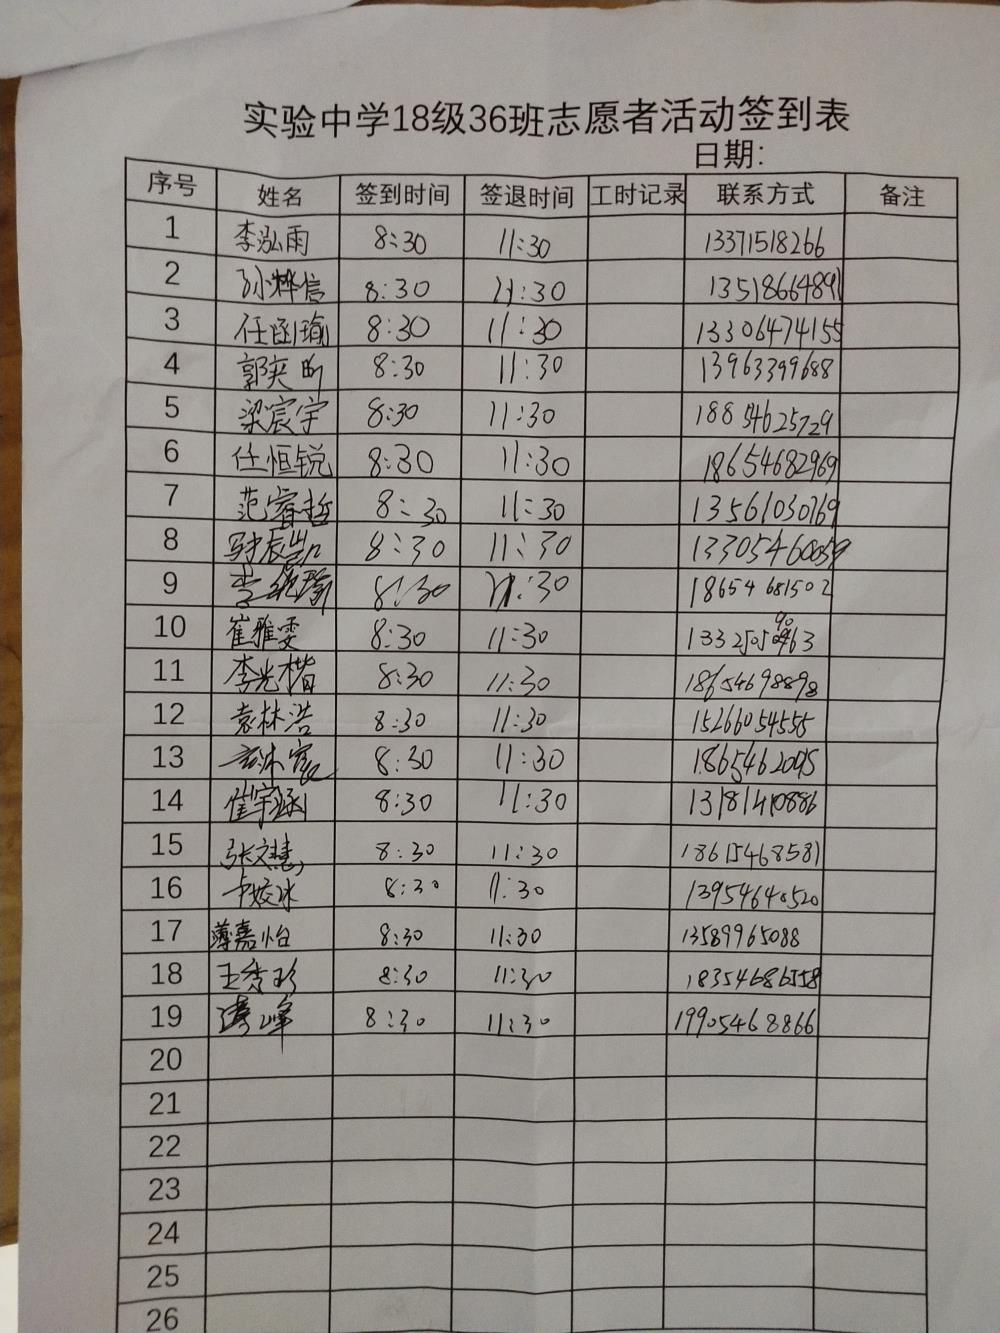 实验中学18级36班志愿者活动签到表
日期:
序号 姓名 签到时间 签退时间 工时记录 联系方式 备注
1 李泓雨 8:30 11:30 13371518266
2 孙烨信 8:30 11:30 13518664891
3 任函瑜 8:30 11:30 13306474155
4 郭奕昕 8:30 11:30 13963399688
5 梁宸宇 8:30 11:30 18854625729
6 任恒锐 8:30 11:30 18654682969
7 范睿哲 8:30 11:30 13561030769
8 8:30 11:30 13305460059
9 8:30 11:30 18654681502
10 崔雅雯 8:30 11:30
11 李光楷 8:30 11:30 18654698898
12 袁林浩 8:30 11:30 15266054555
13 8:30 11:30
14 崔宇涵 8:30 11:30 13181410886
15 张文慧 8:30 11:30 18615468581
16 卞姣冰 8:30 11:30 13954640520
17 薄嘉怡 8:30 11:30 13589965088
18 王秀珍 8:30 11:30 18354686558
19 8:30 11:30 19905468866
20
21
22
23
24
25
26